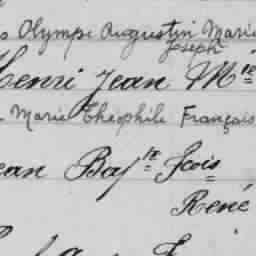 s Olympe Augustin Marie
Joseph
Henri Jean M^ie
Marie Théophile François
ean Bap^te Fcois
René